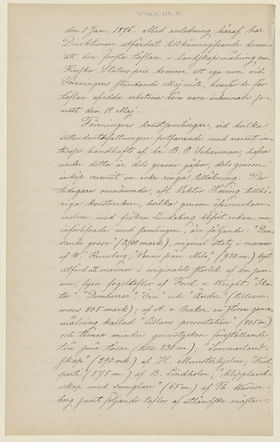 den 1 Jan. 1876. Med anledning häraf, har
Direktionen utfärdat tillkännagifvande derom
att den första täflan i landskapsmålning om
Finska Statens pris kommer att ega rum vid
Föreningens stundande Majmöte, hvarför de för
täflan afsedda arbetena böra vara inlemnade se-
nast den 18 Maj.
Föreningens konstsamlingar, vid hvilka
intendentsbefattningen fortfarande med varmt in-
tresse handhafts af hr B. O. Schauman, hafva
under detta år dels genom gåfvor, dels genom
inköp vunnit en icke ringa tillökning. De
tidigare omnämnda, af Rektor tillhö-
riga konstverken, hvilka genom öfverenskom-
melse med fröken Lindeberg blifvit redan nu
införlifvade med samlingen, äro följande:
sande gosse" (2,900 mark), original staty i marmor
af W. Runeberg, "Venus från Milo" (920 m.) byst
utförd i marmor i originalets storlek af den sam-
me, fyra fogelstycken af Ferd. v. Wright,
"Domherrar" och "Änder" (tillsam-
mans 805 mark); af A. v. Becker en större genre-
målning kallad "Lillans presentation" (925 m.)
och tvenne mindre genrestycken föreställande
två små tösar (tills. 230 m), "Sommarland-
skap" (230 mk.) af H. Munsterhjelm,
parti (575 m.) af B. Lindholm, "Klippland-
skap med " (65 m.) af Th. Waener-
berg samt följande taflor af utländske mästare: